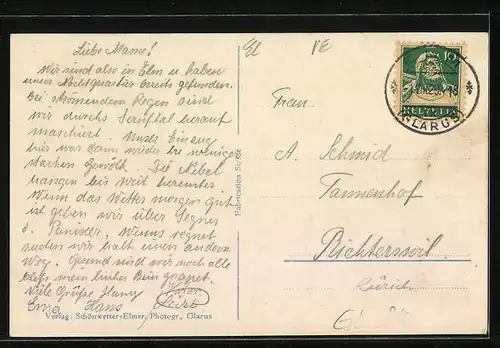 Liebe Mame!
Wir sind also in Elm u. haben
unser Nachtquartier bereits gefunden.
Bei strömendem Regen sind
wir durchs Sernftal herauf
marschiert. Unser Einzug
hier war dann wieder bei
starkem Gewölk. Die Nebel
hangen bis weit herunter.
Wenn das Wetter morgen gut
ist gehen wir über Segnes
o. Panixer. Wenns regnet
suchen wir halt einen andern
Weg. Gesund sind wir noch alle
mein linkes Bein
Viele Grüsse
Erna Hans
Verlag: Schönwetter-Elmer, Photogr., Glarus
El
Frau
A. Schmid
Tannenhof
Richterswil
Zürich
10
HELVETIA
(GLARUS)